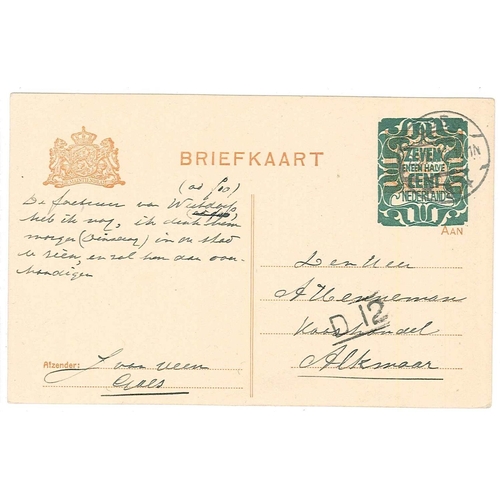 BRIEFKAART
ZEVEN
EN EEN HALVE
CENT
NEDERLAND
AAN
De factuur van
heb ik nog, ik denk hem
morgen (Dinsdag) in de stad
te zien, en zal hem dan over-
handigen
Den Heer
A Henneman
Kaashandel
Alkmaar
D 12
Afzender: J van Veen